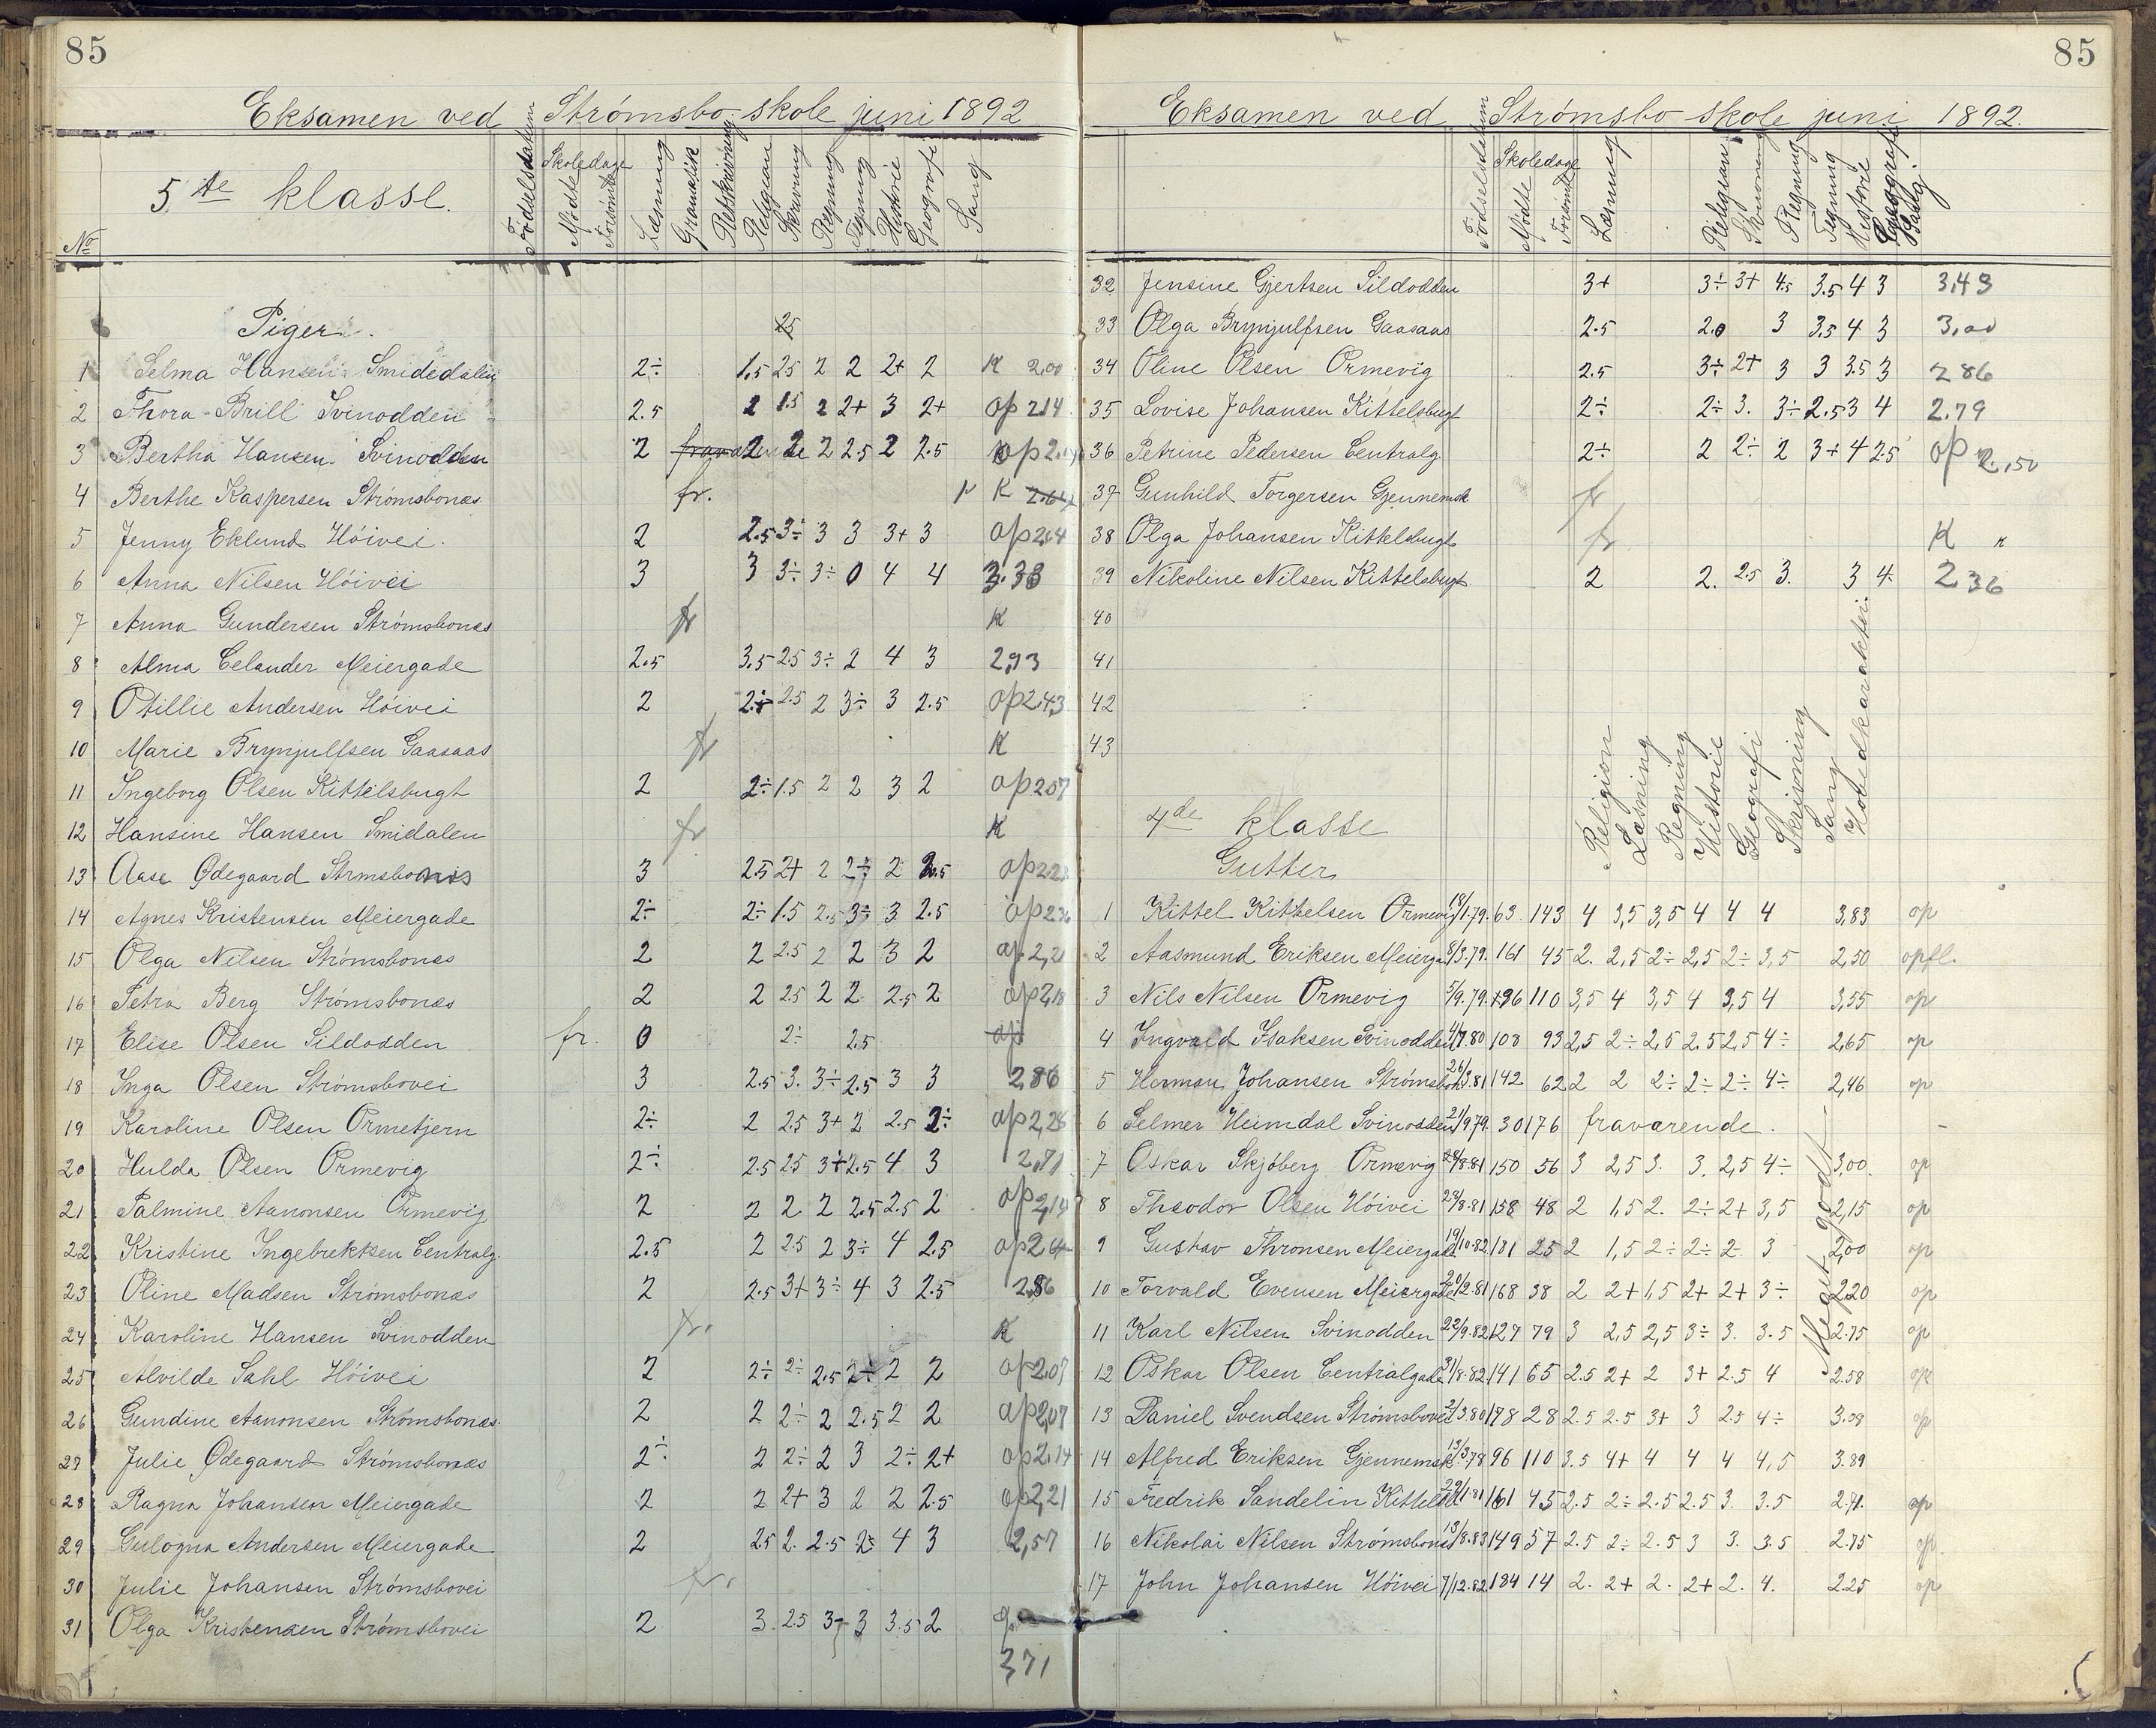 85
Eksamen ved Strømsbo skole juni 1892
No
5te klasse.
Fødselsdatum
Skoledage
Mødte
Forsømte
Læsning
Gramatik
Retskrivning
Religion
Skrivning
Regning
Tegning
Historie
Geografi
Sang
Piger.
1 Selma Hansen Smidedalen 2÷ 1.5 2.5 2 2 2+ 2 K 2,00
2 Thora Brill Svinodden 2.5 2 1.5 2 2+ 3 2+ op 2.14
3 Bertha Hansen Svinodden 2 2 2 2 2.5 2 2.5 op
4 Berthe Kaspersen Strømsbonæs fr. K
5 Jenny Eklund Høivei. 2 2.5 3÷ 3 3 3+ 3 op 2.64
6 Anna Nilsen Høivei 3 3 3÷ 3÷ 0 4 4 3.33
7 Anna Gundersen Strømsbonæs fr K
8 Alma Celander Meiergade 2.5 3.5 2.5 3÷ 2 4 3 2,93
9 Otillie Andersen Høivei 2 2÷ 2.5 2 3÷ 3 2.5 op 2.43
10 Marie Brynjulfsen Gaasaas fr K
11 Ingeborg Olsen Kittelsbugt 2 2÷ 1.5 2 2 3 2 op 2.07
12 Hansine Hansen Smidalen fr K
13 Aase Ødegaard Strmsbonæs 3 2.5 2+ 2 2÷ 2 2.5 op
14 Agnes Kristensen Meiergade 2÷ 2÷ 1.5 2.5 3÷ 3 2.5 op
15 Olga Nilsen Strømsbonæs 2 2 2.5 2 2 3 2 op 2,21
16 Petra Berg Strømsbonæs 2 2 2.5 2 2 2.5 2 op 2,18
17 Elise Olsen Sildodden fr. 0 2÷ 2.5 op
18 Inga Olsen Strømsbovei 3 2.5 3. 3÷ 2.5 3 3 2,86
19 Karoline Olsen Ormetjern 2÷ 2 2.5 3+ 2 2.5 2÷ op 2,28
20 Hulda Olsen Ormevig 2÷ 2.5 2.5 3+ 2.5 4 3 2,71
21 Palmine Aanonsen Ormevig 2 2 2 2 2.5 2.5 2 op 2,14
22 Kristine Ingebrektsen Centralg. 2.5 2 2.5 2 3÷ 4 2.5 op
23 Oline Madsen Strømsbonæs 2 2.5 3+ 3÷ 4 3 2.5 2,86
24 Karoline Hansen Svinodden fr. K
25 Alvilde Dahl Høivei 2 2÷ 2÷ 2.5 2÷ 2 2 op 2,07
26 Gundine Aanonsen Strømsbonæs. 2 2 2÷ 2 2.5 2 2 op 2,07
27 Julie Ødegaard Strømsbonæs 2÷ 2 2÷ 2 3 2÷ 2+ op 2,14
28 Ragna Johansen Meiergade 2 2 2+ 3 2 2 2.5 op 2,21
29 Gulogna Andersen Meiergade 2 2.5 2. 2.5 2÷ 4 3 2,57
30 Julie Johansen Strømsbovei fr.
31 Olga Kristensen Strømsbovei 2 3 2.5 3 3 3.5 2
85
Eksamen ved Strømsbo skole juni 1892.
Fødselsdatum
Skoledage
Mødte
Forsømte
Læsning
Religion
Skrivning
Regning
Tegning
Historie
Geografi
Sang
32 Jensine Gjertsen Sildodden 3+ 3÷ 3+ 4.5 3.5 4 3 3,43
33 Olga Brynjulfsen Gaasaas 2.5 2.0 3 3.5 4 3 3,00
34 Oline Olsen Ormevig 2.5 3÷ 2+ 3 3 3.5 3 2 86
35 Lovise Johansen Kittelsbugt 2÷ 2÷ 3. 3÷ 2.5 3 4 2.79
36 Petrine Pedersen Centralg. 2÷ 2 2÷ 2 3+ 4 2.5 op 2,50
37 Gunhild Torgersen Gjennemsk fr
38 Olga Johansen Kittelsbugt fr K
39 Nikoline Nilsen Kittelsbugt 2 2. 2.5 3. 3 4. 2,36
40
41
42
43
4de klasse
Gutter
Religion
Læsning
Regning
Historie
Geografi
Skrivning
Sang
Hovedkarakter.
1 Kittel Kittelsen Ormevig 18/1.79. 63 143 4 3,5 3,5 4 4 4 3,83 op
2 Aasmund Eriksen Meierga 8/3.79. 161 45 2. 2,5 2÷ 2,5 2÷ 3,5 2,50 opfl.
3 Nils Nilsen Ormevig 5/9.79. 96 110 3,5 4 3,5 4 3,5 4 3,55 op
4 Ingvald Isaksen Svinodden 4/7.80 108 93 2,5 2÷ 2,5 2.5 2,5 4÷ 2,65 op
5 Herman Johansen Strømsbon 26/3.81 142 62 2 2 2÷ 2÷ 2÷ 4÷ 2,46 op
6 Selmer Heimdal Svinodden 21/9.79. 30 176 fraværende.
7 Oskar Skjøberg Ormevig 28/8.81 150 56 3 2,5 3. 3. 2,5 4÷ 3,00. op
8 Theodor Olsen Høivei 28/8.81 158 48 2 1,5 2. 2÷ 2+ 3,5 2,15 op
9 Gustav Thronsen Meiergade 19/10.82 181 25 2 1,5 2÷ 2÷ 2. 3 2,00 op
10 Torvald Evensen Meiergade 20/2.81 168 38 2 2+ 1,5 2+ 2+ 3÷ 2,20 op
11 Karl Nilsen Svinodden 22/9.82 127 79 3 2,5 2,5 3÷ 3. 3.5 2.75 op
12 Oskar Olsen Centralgade 31/8.82 141 65 2.5 2+ 2 3+ 2.5 4 2.58 op
13 Daniel Svendsen Strømsbovei 2/3.80 178 28 2.5 2.5 3+ 3 2.5 4÷ 3.08 op
14 Alfred Eriksen Gjennemsk 13/3.78 96 110 3.5 4+ 4 4 4 4,5 3.89
15 Fredrik Sandelin Kittelsb 29/1.81 161 45 2.5 2÷ 2.5 2.5 3. 3.5 2.71. op
16 Nikolai Nilsen Strømsbonæs 13/8.83 149 57 2.5 2÷ 2.5 3 3. 3.5 2.75 op.
17 John Johansen Høivei 7/12.82 184 14 2. 2+ 2. 2+ 2. 4. 2.25 op
Meget godt